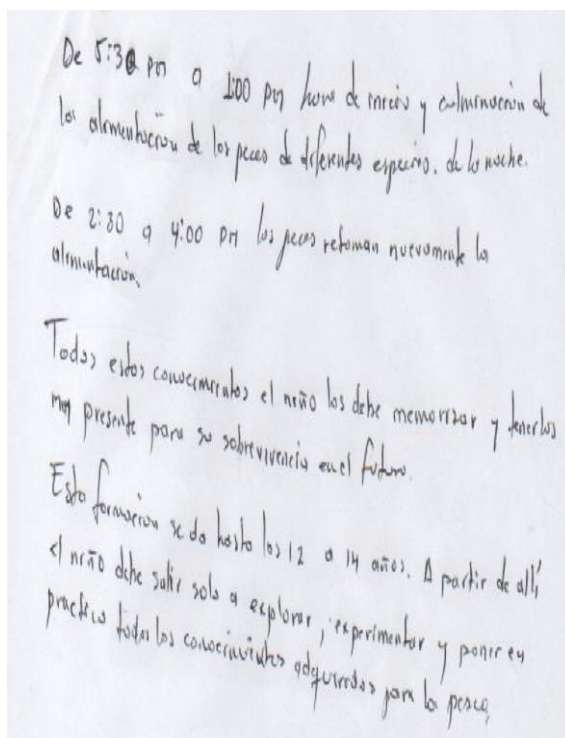 De 5:30 pm a 1:00 pm hora de inicio y culminación de
la alimentación de los peces de diferentes especies. de la noche.
De 2:30 a 4:00 pm los peces retoman nuevamente la
alimentación.
Todos estos conocimientos el niño los debe memorizar y tenerlos
muy presente para su sobrevivencia en el futuro.
Esta formación se da hasta los 12 a 14 años. A partir de allí
el niño debe salir solo a explorar, experimentar y poner en
practica todos los conocimientos adquiridos para la pesca.